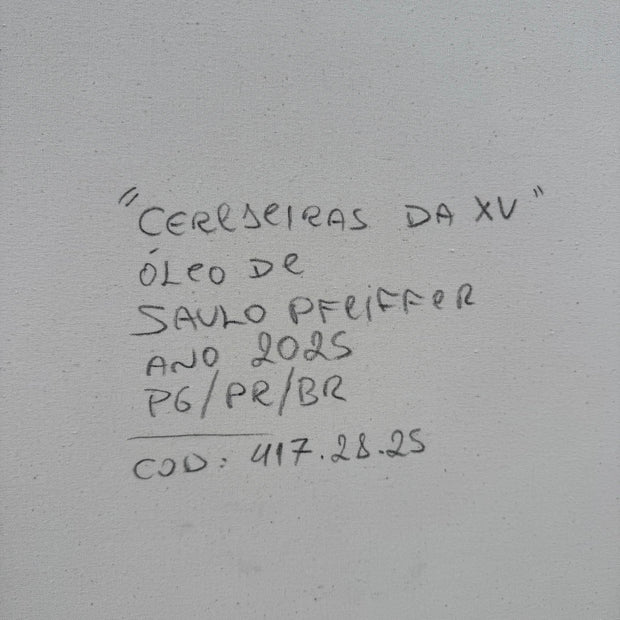 "CEREJEIRAS DA XV"
ÓLEO DE
SAULO PFEIFFER
ANO 2025
PG/PR/BR
COD: 417.28.25